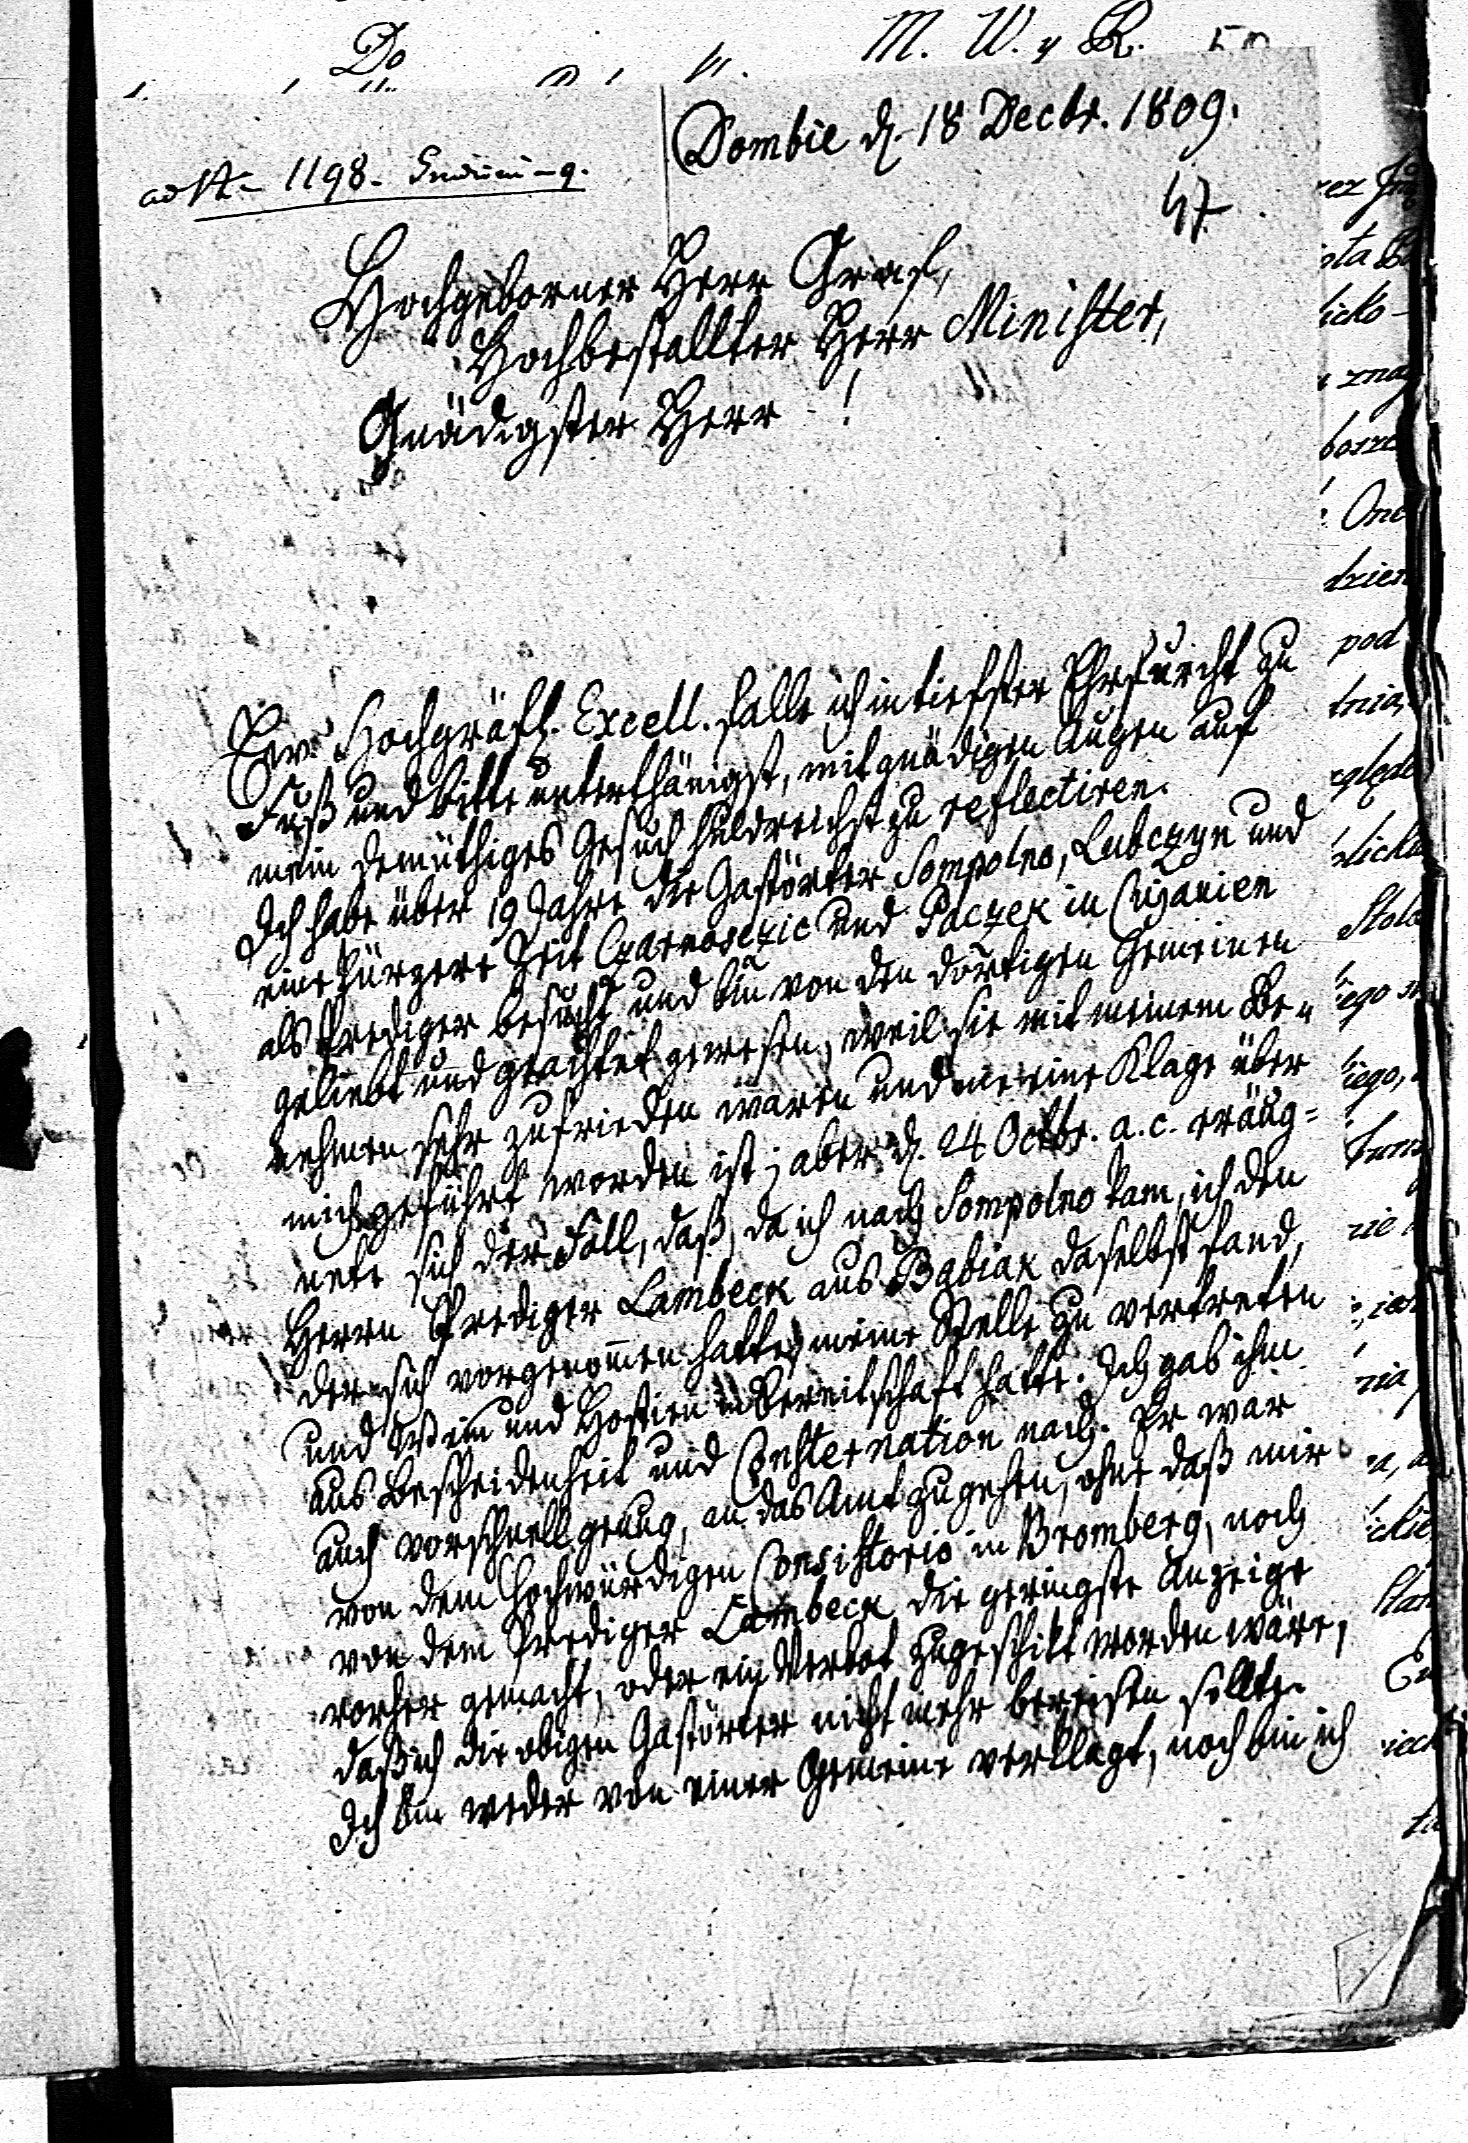 M. W. y R.
Dombie d. 18 Decbr. 1809.
ad No 1198.
47
Hochgeborner Herr Graf,
Hochbestallter Herr Minister,
Gnädigster Herr!
Ew. Hochgräfl. Excell. falle ich in tiefster Ehrfurcht zu
Fuß und bitte unterthänigst, mit gnädigen Augen auf
mein demüthiges Gesuch huldreichst zu reflectiren.
Ich habe über 19 Jahre die Gastörter Sompolno, Lubczyn und
eine kürzere Zeit Czarnosczic und Paczek in Cujavien
als Prediger besucht und bin von den dortigen Gemeinen
geliebt und geachtet gewesen, weil sie mit meinem Be-
nehmen sehr zufrieden waren und nie eine Klage über
mich geführt worden ist; aber d. 24 Octbr. a. c. eräug=
nete sich der Fall, daß, da ich nach Sompolno kam, ich den
Herrn Prediger Lambeck aus Babiak daselbst fand,
der sich vorgenommen hatte, meine Stelle zu vertreten
und Wein und Hostien in Bereitschaft hatte. Ich gab ihm
aus Bescheidenheit und Consternation nach. Er war
auch vorschnell genug, an das Amt zu gehen, ohne daß mir
von dem Hochwürdigen Consistorio in Bromberg, noch
von dem Prediger Lambeck die geringste Anzeige
vorher gemacht, oder ein Verbot zugeschikt worden wäre,
daß ich die obigen Gastörter nicht mehr bereisen sollte.
Ich bin weder von einer Gemeine verklagt, noch bin ich